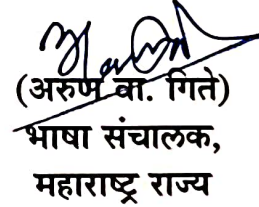 (अरुण वा. गिते)
भाषा संचालक,
महाराष्ट्र राज्य